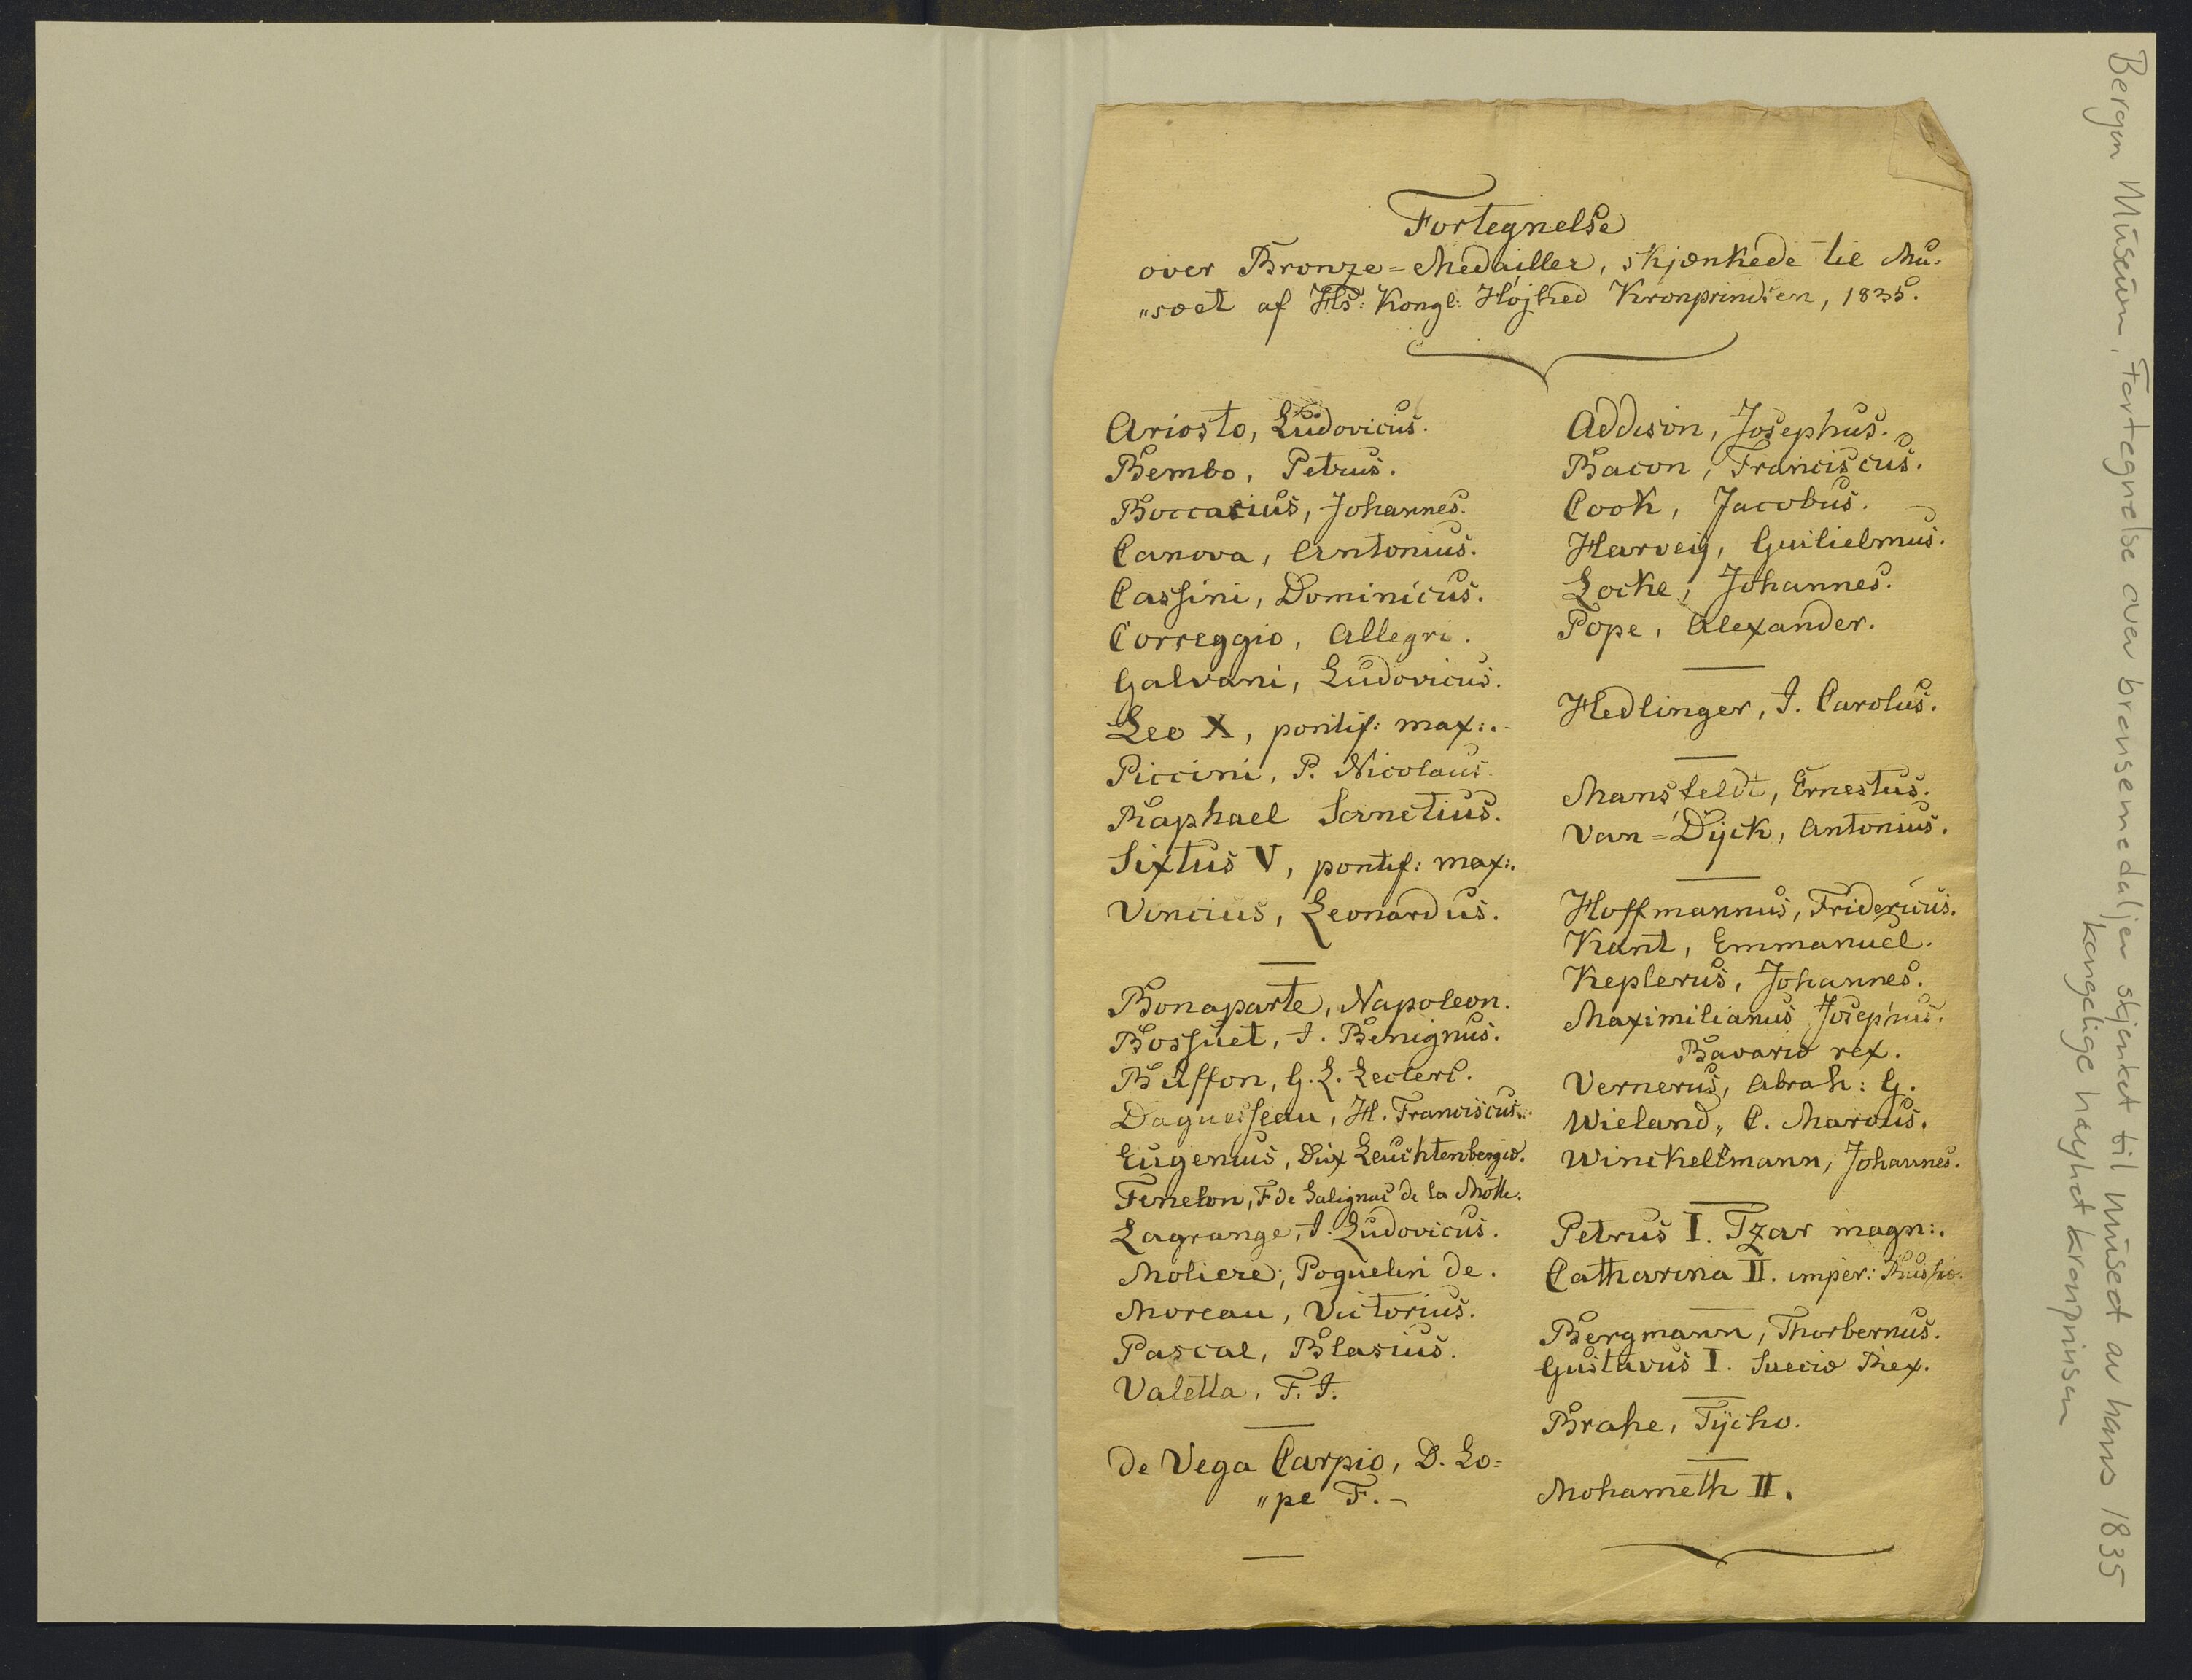 Fortegnelse
over Bronze=Medailler, skjænkede til Mu-
"sæet af Hs: Kongl: Højhed Kronprindsen, 1835.
Ariosto, Ludovicus.
Bembo, Petrus.
Boccacius, Johannes.
Canova, Antonius.
Cassini, Dominicus.
Correggio, Allegri.
Galvani, Ludovicus.
Leo X, pontif: max:.-
Piccini, P. Nicolaus.
Raphael Sanctius.
Sixtus V, pontif: max:.
Vincius, Leonardus.
Bonaparte, Napoleon.
Bossuet, J. Benignus.
Buffon, G. L. Leclerc.
Daguesseau, H. Franciscus.
Eugenius, Dux Leuchtenbergiæ.
Fenelon, F de Salignac de la Motte.
Lagrange, J. Ludovicus.
Moliere, Poquelin de.
Moreau, Victorius.
Pascal, Blasius.
Valetta, F. J.
de Vega Carpio, D. Lo=
"pe F. -
Addison, Josephus.
Bacon, Franciscus.
Cook, Jacobus.
Harveij, Guilielmus.
Locke, Johannes.
Pope, Alexander.
Hedlinger, J. Carolus.
Mansfeldt, Ernestus.
Van=Dijck, Antonius.
Hoffmannus, Fridericus.
Kant, Emmanuel.
Keplerus, Johannes.
Maximilianus Josephus.
Bavariæ rex.
Vernerus, Abrah: G.
Wieland, C. Marous.
Winckellmann, Johannes.
Petrus I. Tzar magn:.
Catharina II. imper: Russiæ.
Bergmann, Thorbernus.
Gustavus I. Sueciæ Rex.
Brahe, Tÿcho.
Mohameth II.
Bergen Museum, Fortegnelse over bronsemedaljer skjenket til museet av hans 1835
kongelige høyhet kronprinsen